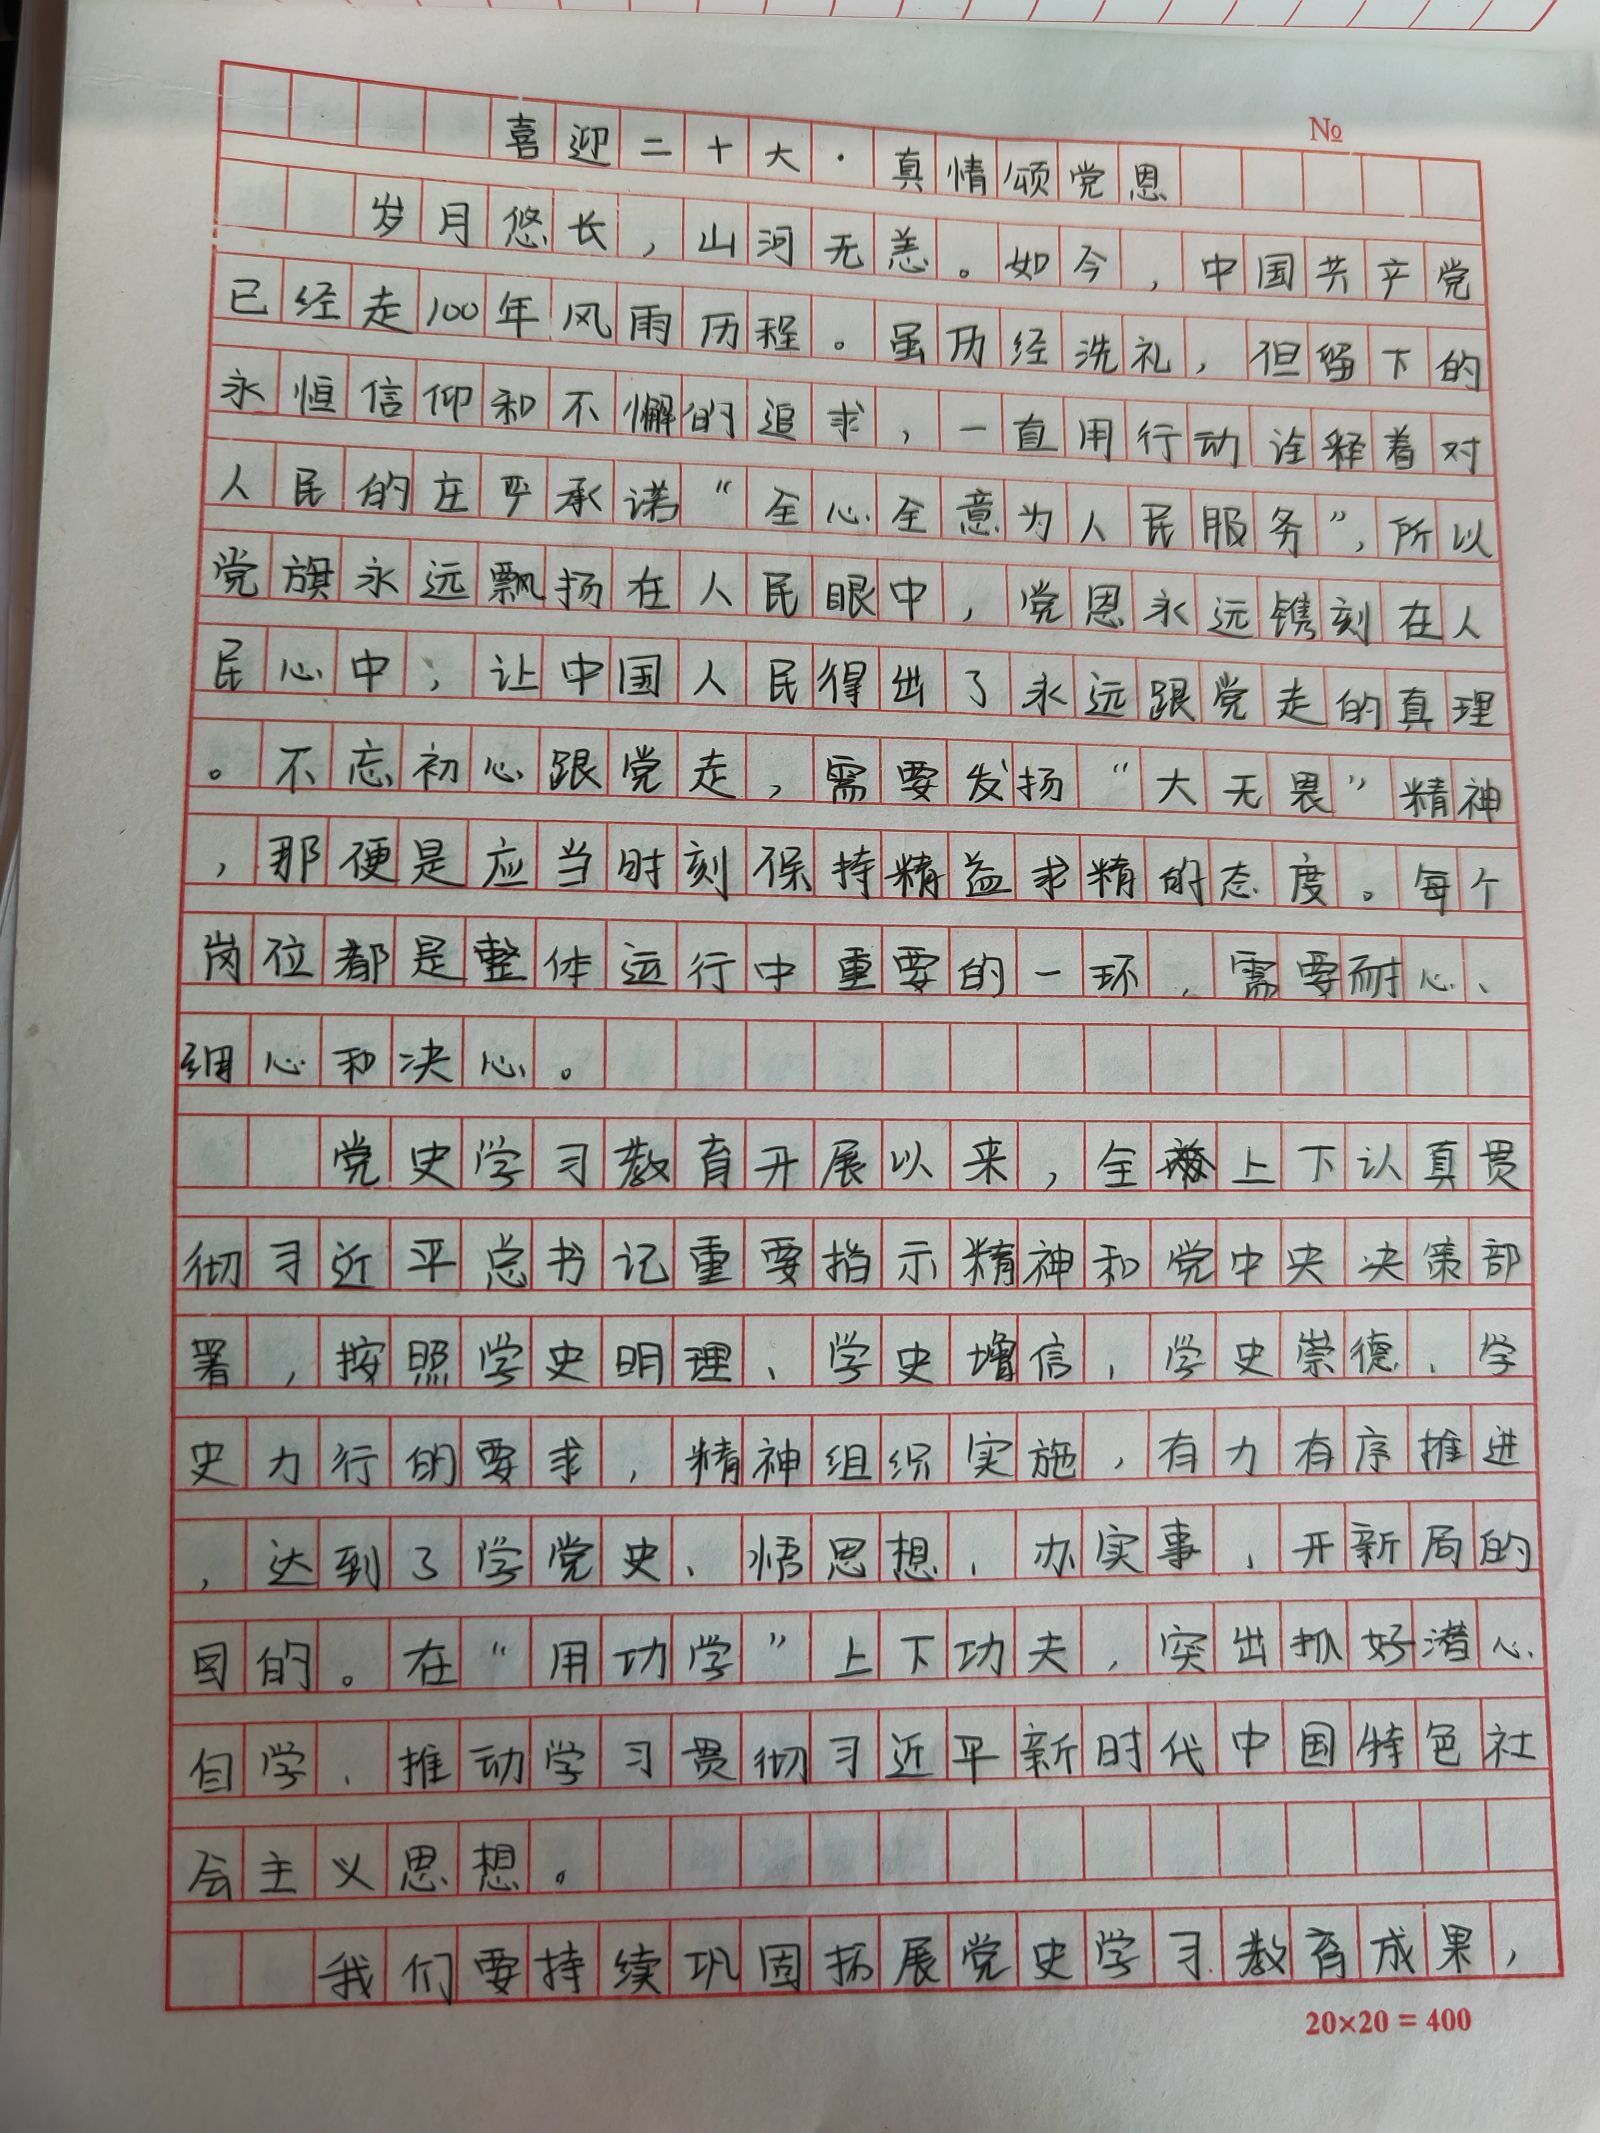 №
喜迎二十大·真情颂党恩
岁月悠长，山河无恙。如今，中国共产党
已经走100年风雨历程。虽历经洗礼，但留下的
永恒信仰和不懈的追求，一直用行动诠释着对
人民的庄严承诺“全心全意为人民服务”，所以
党旗永远飘扬在人民眼中，党恩永远镌刻在人
民心中；让中国人民得出了永远跟党走的真理
。不忘初心跟党走，需要发扬“大无畏”精神
，那便是应当时刻保持精益求精的态度。每个
岗位都是整体运行中重要的一环，需要耐心、
细心和决心。
党史学习教育开展以来，全上下认真贯
彻习近平总书记重要指示精神和党中央决策部
署，按照学史明理、学史增信，学史崇德、学
史力行的要求，精神组织实施，有力有序推进
，达到了学党史、悟思想，办实事，开新局的
目的。在“用功学”上下功夫，突出抓好潜心
自学、推动学习贯彻习近平新时代中国特色社
会主义思想。
我们要持续巩固拓展党史学习教育成果，
20×20＝400